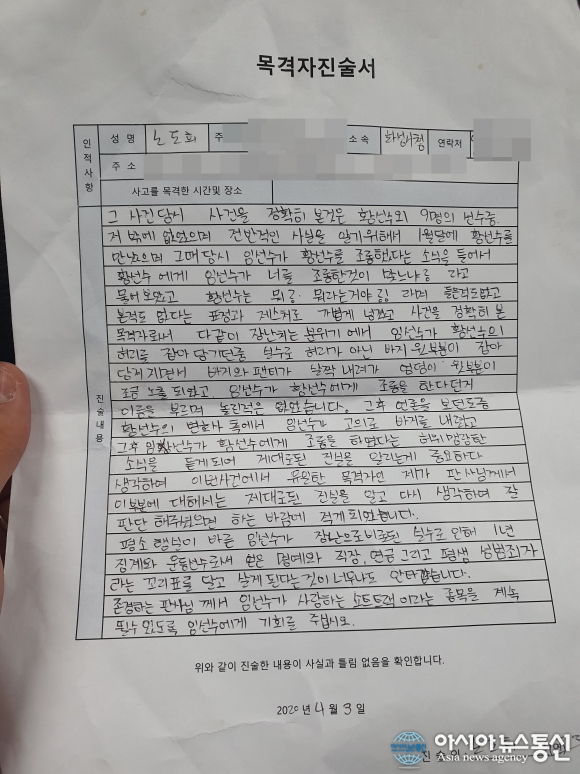 목격자진술서
인적사항
성 명 노도희 주 소 속 화성시청 연락처
주 소
사고를 목격한 시간및 장소
진술내용
그 사건 당시 사건을 정확히 본것은 황선수외 9명의 선수중
저 밖에 없었으며 전반적인 사실을 알기위해서 1월달에 황선수를
만났으며 그때당시 임선수가 황선수를 조롱했다는 소식을 들어서
황선수 에게 임선수가 너를 조롱한것이 맞느냐? 라고
물어보았고 황선수는 뭐? 뭐라는거야? 라며 들은적도없고
본적도 없다는 표정과 제스처로 가볍게 넘겼고 사건을 정확히 본
목격자로서 다같이 장난치는 분위기에서 임선수가 황선수의
허리를 잡아 당기던중 실수로 허리가 아닌 바지 윗부분이 잡아
당겨지면서 바지와 팬티가 살짝 내려가 엉덩이 윗부분이
조금 노출 되었고, 임선수가 황선수에게 조롱을 한다던지
이름을 부르며 놀린적은 없었습니다. 그후 언론을 보던도중
황선수의 변호사 쪽에서 임선수가 고의로 바지를 내렸고
그후 임선수가 황선수에게 조롱을 하였다는 허위맹랑한
소식을 듣게되어 제대로된 진실을 알리는게 중요하다
생각하여 이번사건에서 유일한 목격자인 제가 판사님께서
이부분에 대해서는 제대로된 진실을 알고 다시 생각하여 잘
판단 해주셨으면 하는 바람에 적게 되었습니다.
평소 행실이 바른 임선수가 장난으로 비롯된 실수로 인해 1년
징계와 운동선수로서 얻은 명예와 직장, 연금 그리고 평생 성범죄자
라는 꼬리표를 달고 살게 된다는것이 너무나도 안타깝습니다.
존경하는 판사님 께서 임선수가 사랑하는 쇼트트랙 이라는 종목을 계속
할수 있도록 임선수에게 기회를 주십시요.
위와 같이 진술한 내용이 사실과 틀림 없음을 확인합니다.
2020 년 4 월 3 일
진 술 인
아시아뉴스통신
Asia news agency